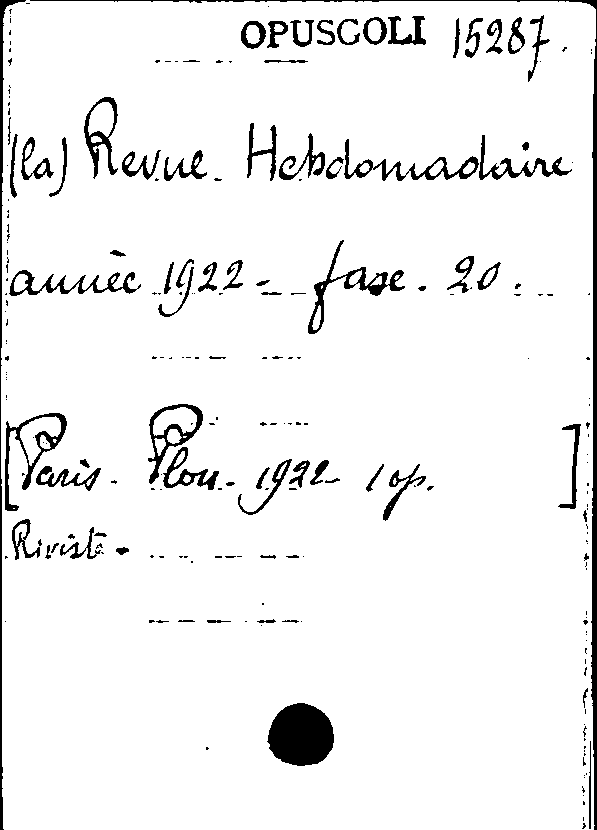 OPUSCOLI 15287.
(la) Revue. Hebdomadaire
année 1922 - fasc. 20.
[Paris. Plon. 1922 - 1 op. ]
Riviste -